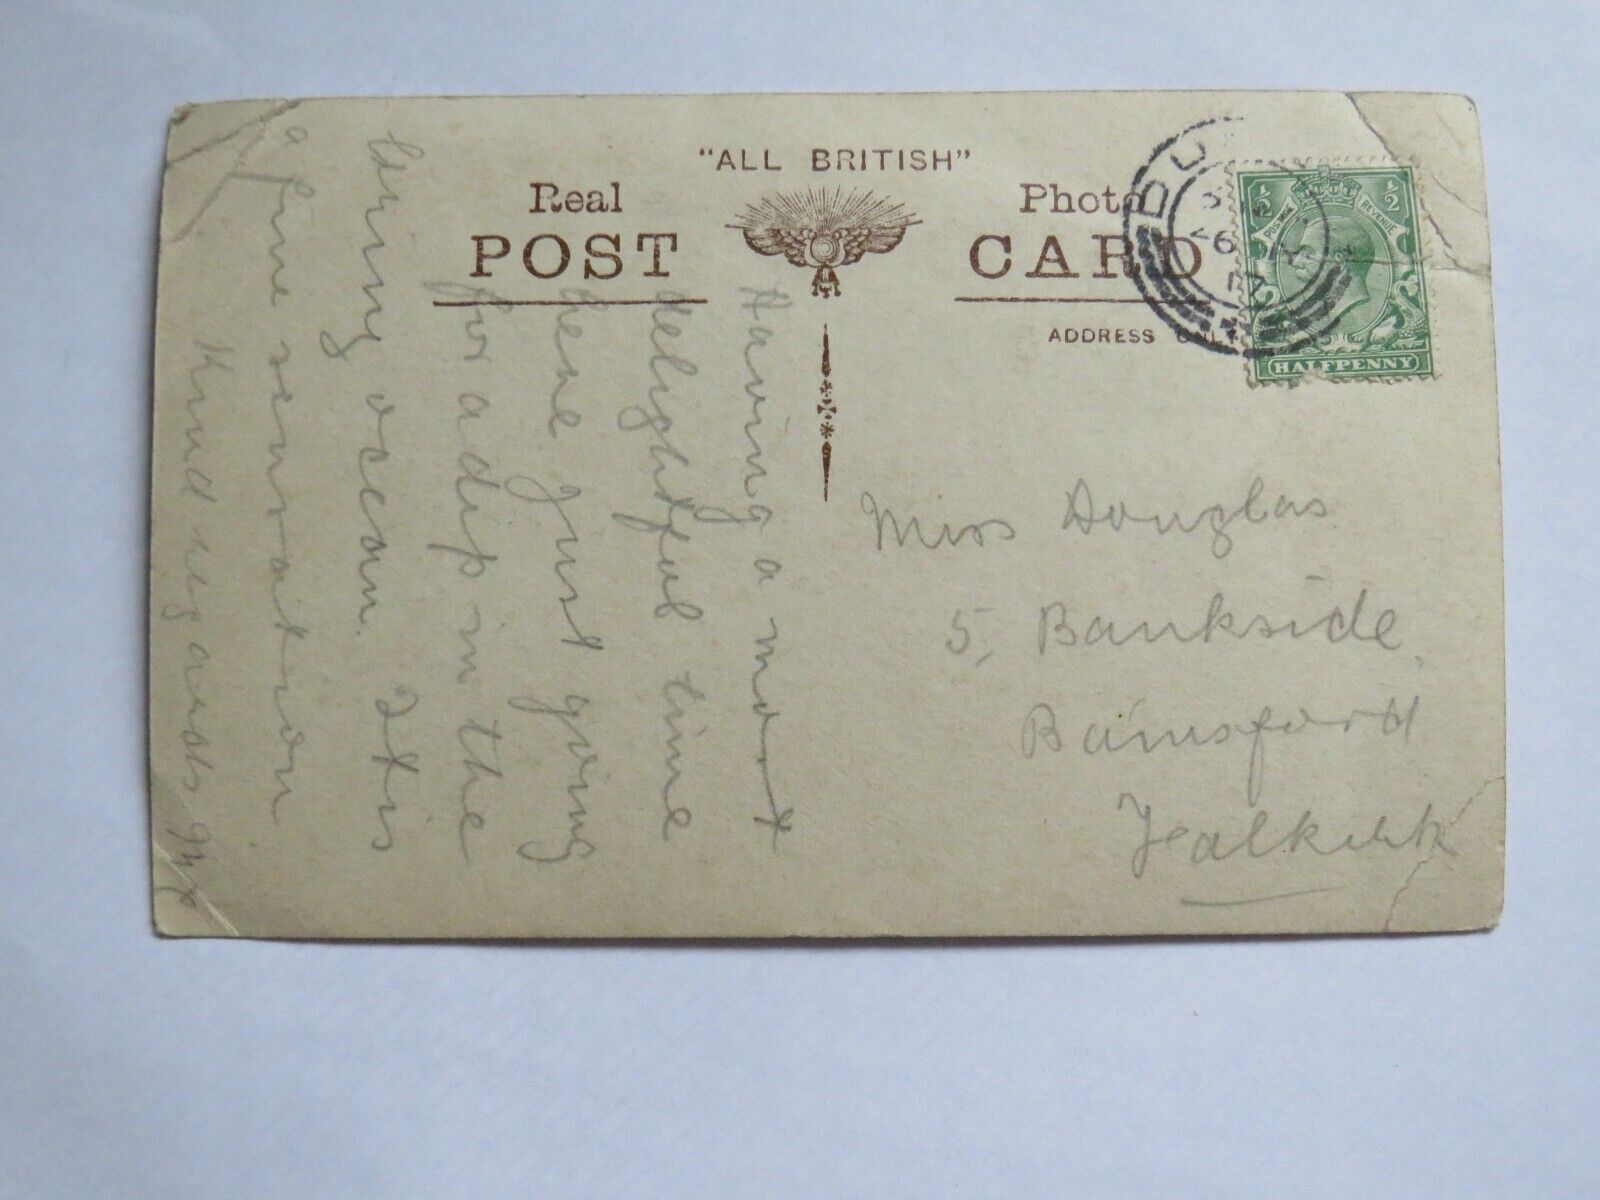 "ALL BRITISH"
Real Photo
POST CARD
ADDRESS ONLY
HALFPENNY
POSTAGE
REVENUE
½ ½
BU
Having a most
delightful time
here just going
for a dip in the
briny ocean. It is
a fine sensation
Kind regards
Miss Douglas
5, Bankside,
Bainsford
Falkirk